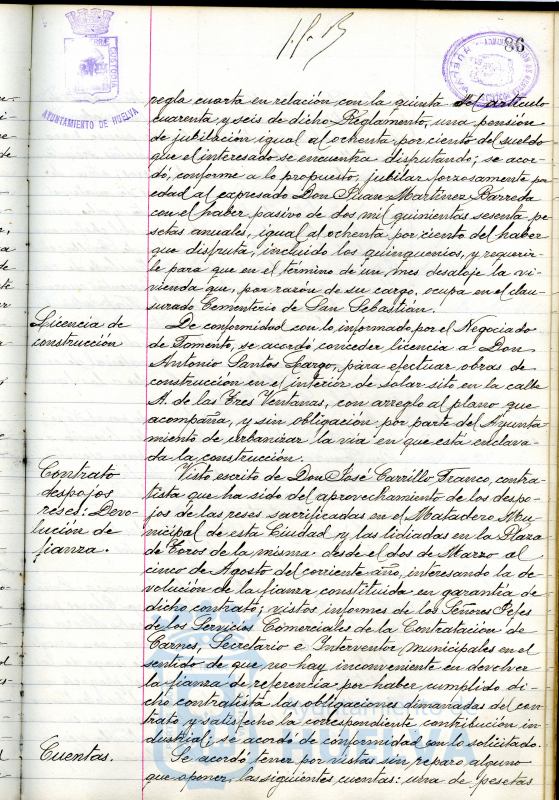 86
AYUNTAMIENTO DE HUELVA
regla cuarta en relación con la quinta del artículo
cuarenta y seis de dicho Reglamento, una pensión
de jubilación igual al ochenta por ciento del sueldo
que el interesado se encuentra disfrutando; se acor-
dó, conforme a lo propuesto, jubilar forzosamente por
edad al expresado Don Juan Martínez Barreda
con el haber pasivo de dos mil quinientas sesenta pe-
setas anuales, igual al ochenta por ciento del haber
que disfruta, incluido los quinquenios, y requerir-
le para que en el término de un mes desaloje la vi-
vienda que, por razón de su cargo, ocupa en el clau-
surado Cementerio de San Sebastián.
Licencia de
construcción
De conformidad con lo informado por el Negociado
de Fomento, se acordó conceder licencia a Don
Antonio Santos Largo, para efectuar obras de
construcción en el interior de solar sito en la calle
A. de las Tres Ventanas, con arreglo al plano que
acompaña, y sin obligación por parte del Ayunta-
miento de urbanizar la vía en que está enclava-
da la construcción.
Contrato
despojos
reses: Devo-
lución de
fianza.
Visto escrito de Don José Carrillo Franco, contra-
tista que ha sido del aprovechamiento de los despo-
jos de las reses sacrificadas en el Matadero Mu-
nicipal de esta Ciudad y las lidiadas en la Plaza
de Toros de la misma desde el dos de Marzo al
cinco de Agosto del corriente año, interesando la de-
volución de la fianza constituida en garantía de
dicho contrato; vistos informes de los Señores Jefes
de los Servicios Comerciales de la Contratación de
Carnes, Secretario e Interventor municipales en el
sentido de que no hay inconveniente en devolver
la fianza de referencia por haber cumplido di-
cho contratista las obligaciones dimanadas del con-
trato y satisfecho la correspondiente contribución in-
dustrial; se acordó de conformidad con lo solicitado.
Cuentas.
Se acordó tener por vistas sin reparo alguno
que oponer, las siguientes cuentas: una de pesetas
HUELVA